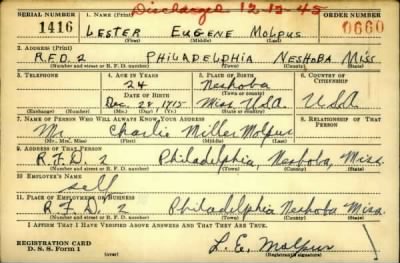 Discharged 12-15-45
SERIAL NUMBER 1. NAME (Print) ORDER NUMBER
1416 LESTER EUGENE MOLPUS 0660
(First) (Middle) (Last)
2. ADDRESS (Print)
R.F.D. 2 PHILADELPHIA NESHOBA MISS.
(Number and street or R. F. D. number) (Town) (County) (State)
3. TELEPHONE 4. AGE IN YEARS 5. PLACE OF BIRTH 6. COUNTRY OF CITIZENSHIP
24 Neshoba
DATE OF BIRTH (Town or county)
Dec. 28, 1915 Miss. U.S.A. U.S.A.
(Exchange) (Number) (Mo.) (Day) (Yr.) (State or country)
7. NAME OF PERSON WHO WILL ALWAYS KNOW YOUR ADDRESS 8. RELATIONSHIP OF THAT PERSON
Mr. Charlie Miller Molpus
(Mr., Mrs., Miss) (First) (Middle) (Last)
9. ADDRESS OF THAT PERSON
R.F.D. 2 Philadelphia, Neshoba, Miss.
(Number and street or R. F. D. number) (Town) (County) (State)
10. EMPLOYER'S NAME
self
11. PLACE OF EMPLOYMENT OR BUSINESS
R.F.D. 2 Philadelphia Neshoba Miss.
(Number and street or R. F. D. number) (Town) (County) (State)
I AFFIRM THAT I HAVE VERIFIED ABOVE ANSWERS AND THAT THEY ARE TRUE.
REGISTRATION CARD
D. S. S. Form 1 L. E. Molpus
(Registrant's signature)